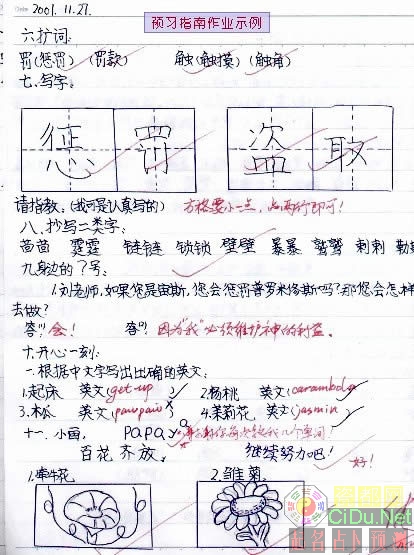 Date 2001.11.27.
预习指南作业示例
六扩词:
罚(惩罚)(罚款) 触(触摸)(触角)
七.写字:
惩罚 盗取
请指教。(我可是认真写的) 方格要小一点,占两行即可!
八.抄写二类字:
苗苗 霆霆 链链 锁锁 壁壁 暴暴 鹫鹫 刺刺 勒
九身边的?号:
1.刘老师,如果您是宙斯,您会惩罚普罗米修斯吗?那您会怎样
去做?
答:会! 答:因为“我”必须维护神的利益。
十.开心一刻:
一.根据中文字写出正确的英文:
1.起床 英文(get up) 2.杨桃 英文(carambola)
3.木瓜 英文(pawpaw) 4.茉莉花 英文(jasmin)
十一.小画, papaya
百花齐放。 继续努力吧! 好!
1.牵牛花 2.雏菊。
CiDu.Net